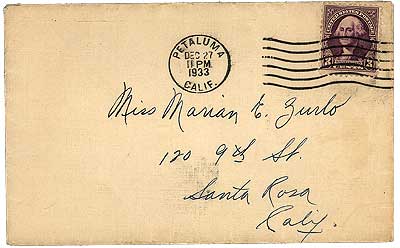 PETALUMA
DEC 27
11 PM
1933
CALIF.
3 3
Miss Marian E. Zurlo
120 9th St.
Santa Rosa
Calif.